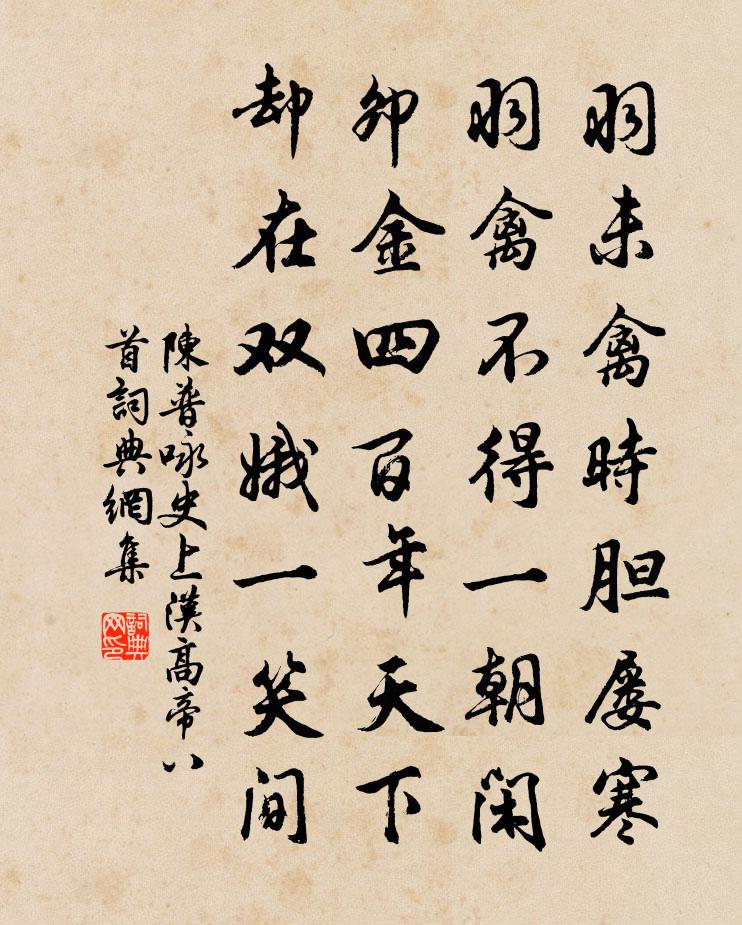 羽未禽時胆屡寒
羽禽不得一朝闲
卯金四百年天下
却在双娥一笑间
陳普咏史上漢高帝八
首詞典網集
詞典网印